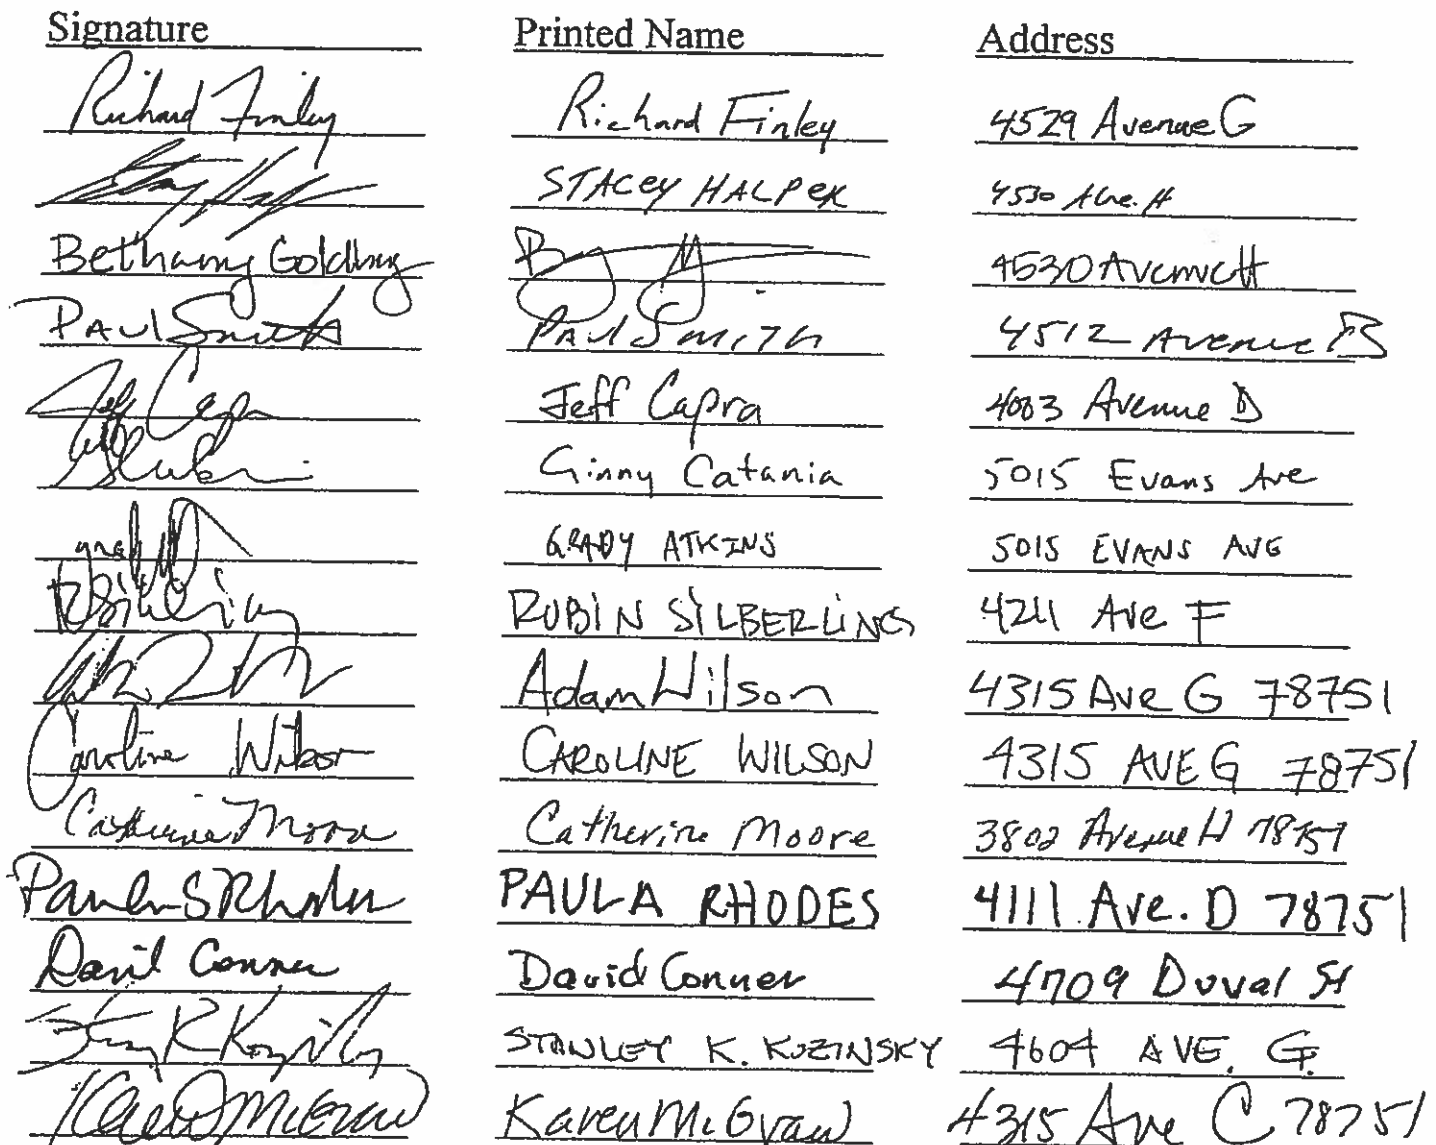 Signature Printed Name Address
Richard Finley Richard Finley 4529 Avenue G
STACEY HALPER 4530 Ave. H
Bethany Golding 4530 Avenue H
Paul Smith Paul Smith 4512 Avenue B
Jeff Capra Jeff Capra Avenue D
Ginny Catania 5015 Evans Ave
GRADY ATKINS 5015 EVANS AVE
RUBIN SILBERLING 4211 Ave F
Adam Wilson 4315 Ave G 78751
Caroline Wilson CAROLINE WILSON 4315 AVE G 78751
Catherine Moore Catherine Moore 3802 Avenue H 78751
Paula S Rhodes PAULA RHODES 4111 Ave. D 78751
David Conner David Conner 4709 Duval St
STANLEY K. KOZINSKY 4604 AVE. G.
Karen McGraw Karen McGraw 4315 Ave C 78751